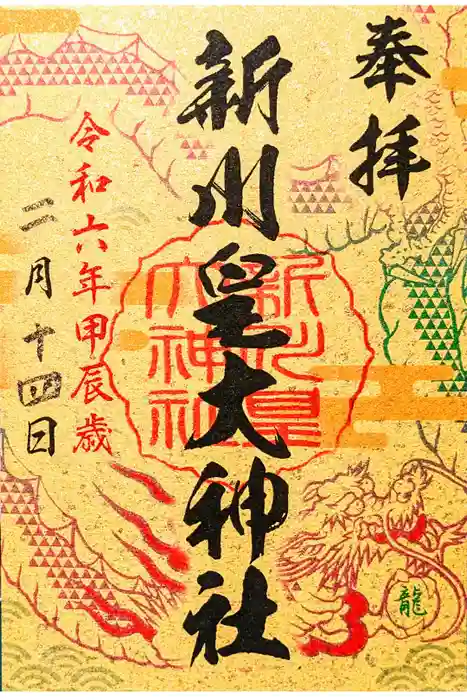 奉拝
新川皇大神社
新川皇
大神社
令和六年甲辰歳
二月十四日
龍